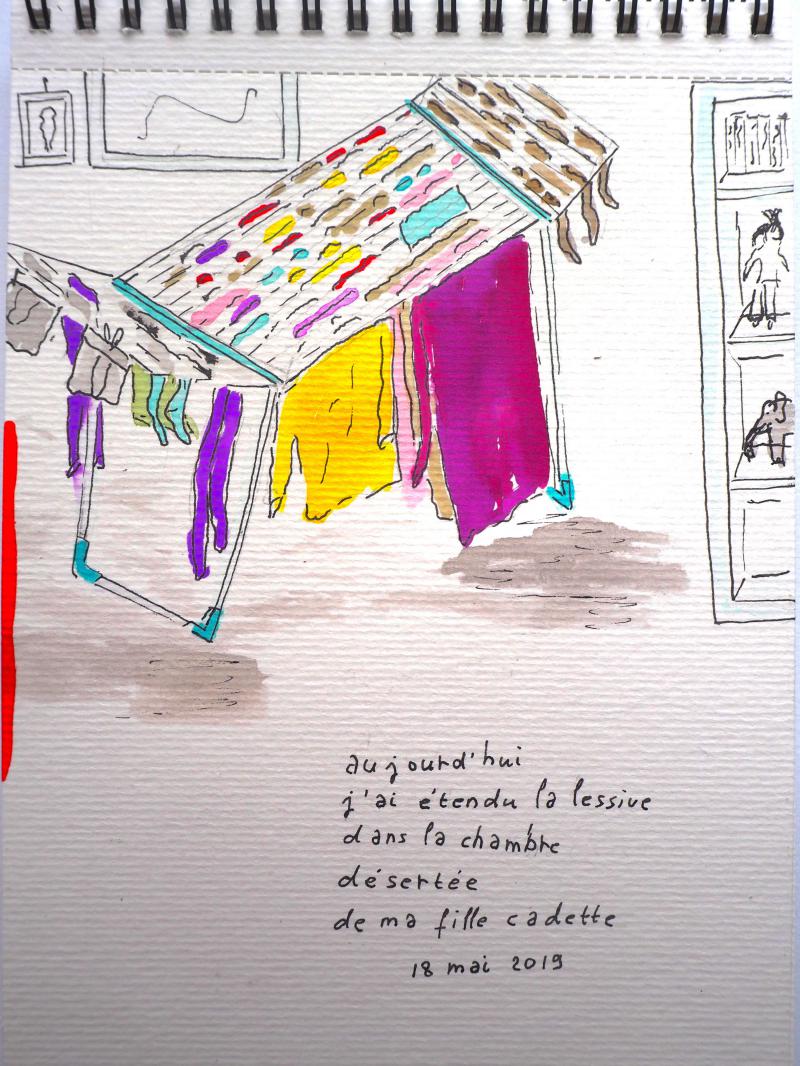 aujourd'hui
j'ai étendu la lessive
dans la chambre
désertée
de ma fille cadette
18 mai 2019